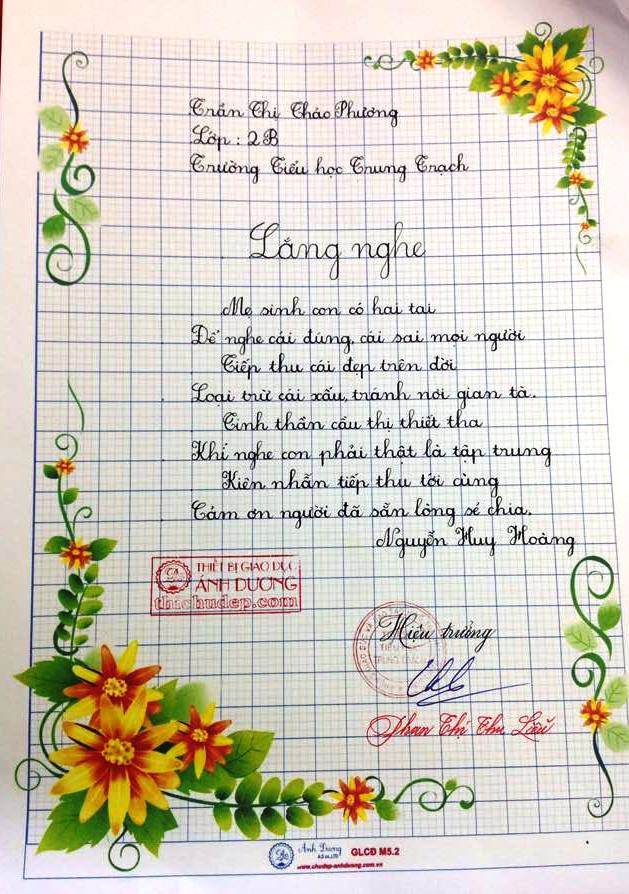 Trần Thị Thảo Phương
Lớp : 2B
Trường Tiểu học Trung Trạch
Lắng nghe
Mẹ sinh con có hai tai
Để nghe cái đúng, cái sai mọi người
Tiếp thu cái đẹp trên đời
Loại trừ cái xấu, tránh nơi gian tà.
Tinh thần cầu thị thiết tha
Khi nghe con phải thật là tập trung
Kiên nhẫn tiếp thu tới cùng
Cảm ơn người đã sẵn lòng sẻ chia.
Nguyễn Huy Hoàng
THIẾT BỊ GIÁO DỤC
ÁNH DƯƠNG
thichudep.com
Hiệu trưởng
Phan Thị Thu Liễu
Ánh Dương
GLCĐ M5.2
www.chudep-anhduong.com.vn